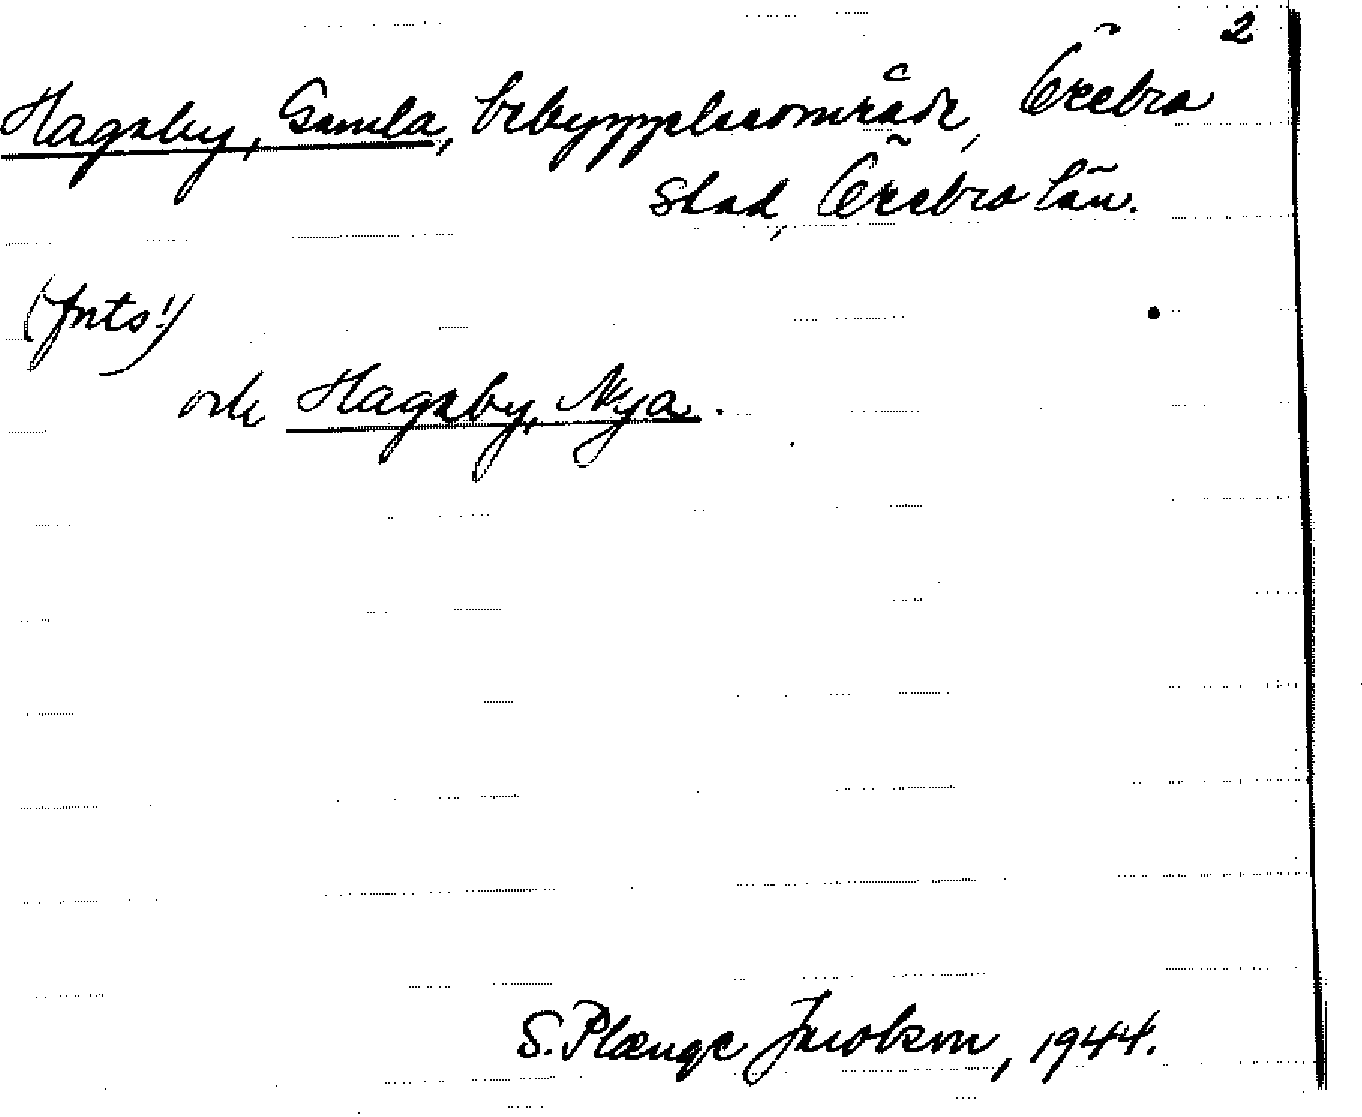 2
Hagaby, Gamla, bebyggelseområde, Örebro
stad, Örebro län.
(forts!)
och Hagaby, Nya.
S. Plænge Jacobson, 1944.